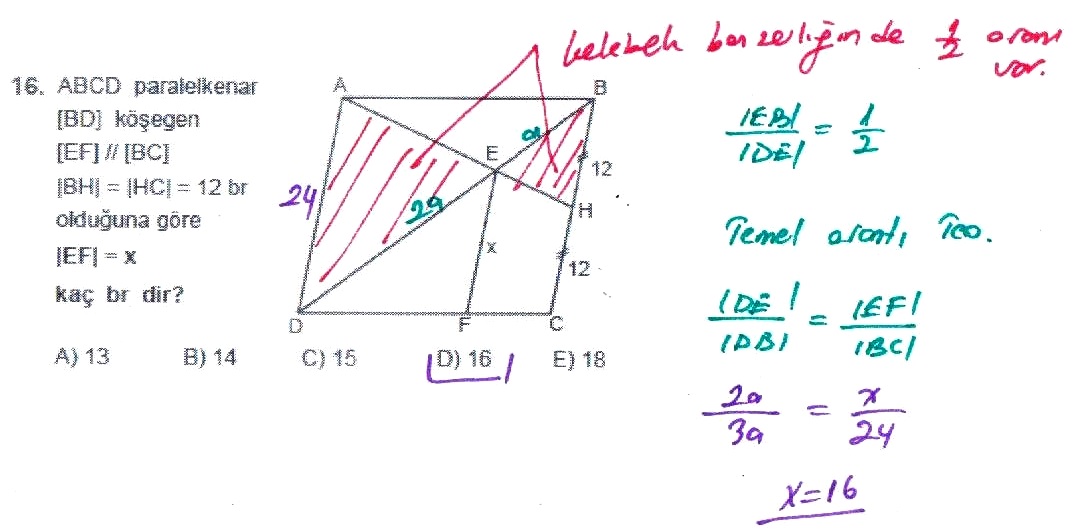 kelebek benzerliğinde 1/2 oranı
var.
16. ABCD paralelkenar
[BD] köşegen
[EF] // [BC]
|BH| = |HC| = 12 br
olduğuna göre
|EF| = x
kaç br dir?
A
B
a
E
12
24
2a
H
x
12
D
F
C
A) 13 B) 14 C) 15 D) 16 E) 18
|EB| / |DE| = 1/2
Temel orantı Teo.
|DE| / |DB| = |EF| / |BC|
2a / 3a = x / 24
x=16